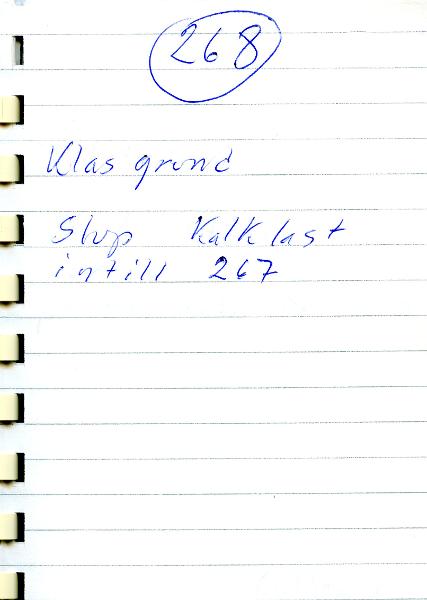 268
Klas grund
Slup Kalklast
intill 267